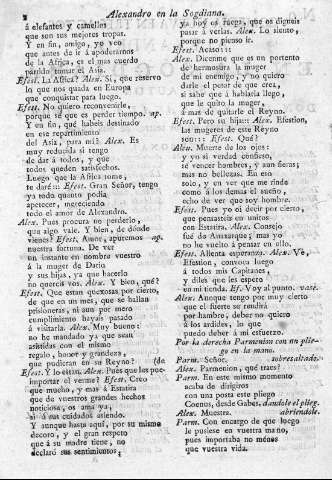 2 Alexandro en la Sogdiana.
á elefantes y camellos
que son sus mejores tropas.
Y en fin, amigo, yo veo
que antes de ir á apoderarnos
de la Africa, es el mas cuerdo
partido tomar el Asia.
Efest. La Africa? Alex. Si, que reservo
lo que nos queda en Europa
que conquistar para luego.
Efest. No quiero reconvenirle,
porque sé que es perder tiempo. ap.
Y en fin, qué habeis destinado
en ese repartimiento
del Asia, para mí? Alex. Es
muy reducida si tengo
de dar á todos, y que
todos queden satisfechos.
Luego que la Africa tome,
te daré::: Efest. Gran Señor, tengo
ya todo quanto podia
apetecer, mereciendo
todo el amor de Alexandro.
Alex. Pues procura no perderlo,
que algo vale. Y bien, de dónde
vienes? Efest. Amor, apuremos ap.
nuestra fortuna. De ver
un instante en nombre vuestro
á la muger de Dario
y sus hijas, ya que hacerlo
no quereis vos. Alex. Y bien, qué?
Efest. Que estan quexosas por cierto,
de que en un mes, que se hallan
prisioneras, ni aun por mero
cumplimiento hayais pasado
á visitarla. Alex. Muy bueno:
no he mandado ya que sean
asistidas con el mismo
regalo, honor y grandeza,
que pudieran en su Reyno? (de
Efest. Y lo estan. Alex. Pues que las pue-
importar el verme? Efest. Creo
que mucho, y mas á Estatira
que de vuestros grandes hechos
noticiosa, os ama ya,
si á mi cuidado atiendo.
Y aunque hasta aquí, por su mismo
decoro, y el gran respeto
que á su madre tiene, no
declaró sus sentimientos;
ya hoy es fuerza, que os digneis
pasar á verlas. Alex. Lo siento,
porque no pienso ir.
Efest. Acaso:::
Alex. Dicenme que es un portento
de hermosura la muger
de mi enemigo, y no quiero
darle el pesar de que crea,
si sabe que á hablarla llego,
que le quito la muger,
á mas de quitarle el Reyno.
Efest. Pero sus hijas::: Alex. Efestion,
las mugeres de este Reyno
son::: Efest. Qué?
Alex. Muerte de los ojos:
y yo si verdad confieso,
sé vencer hombres, y aun fieras;
mas no bellezas. En eso
solo, y en ver que me rinde
como á los demas el sueño,
echo de ver que soy hombre.
Efest. Pues yo oí decir por cierto,
que pensasteis en uniros
con Estatira. Alex. Consejo
fué de Amaxarque; mas yo
no he vuelto á pensar en ello.
Efest. Alienta esperanza. Alex. Ve,
Efestion, convoca luego
á todos mis Capitanes,
y diles que les espero
en mi tienda. Ef. Voy al punto. vase.
Alex. Aunque tengo por muy cierto
que el fuerte se rendirá
por hambre, deber no quiero
á los ardides, lo que
puedo deber á mi esfuerzo.
Por la derecha Parmenion con un plie-
go en la mano.
Parm. Señor. sobresaltado.
Alex. Parmenion, qué traes?
Parm. En este mismo momento
acaba de dirigiros
con una posta este pliego
Coenus, desde Gabes. dandole el pliego.
Alex. Muestra. abriendole.
Parm. Con encargo de que luego
le pusiese en vuestra mano,
pues importaba no ménos
que vuestra vida.